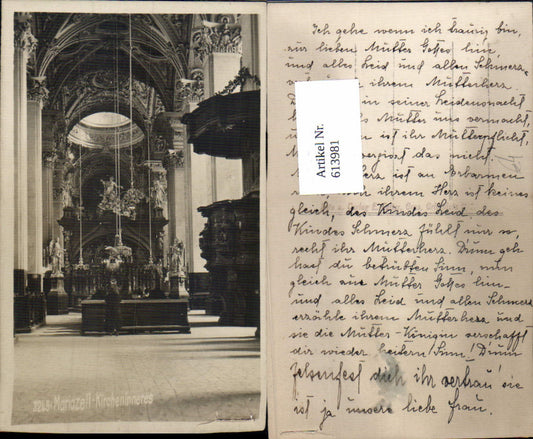 3248. Mariazell - Kircheninneres
Ich gehe wenn ich traurig bin,
zur lieben Mutter Gottes hin
und alles Leid und allen Schmerz
ihrem Mutterherz
in seiner Leidensnacht
Mutter uns vermacht,
ist ihr Mutterpflicht,
das nicht
ist an Erbarmen
ihrem Herz ist keines
gleich, des Kindes Leid des
Kindes Schmerz fühlt nur so
recht ihr Mutterherz. D'rum geh
hast du betrübten Sinn, nun
gleich zur Mutter Gottes hin
und alles Leid und allen Schmerz
erzähle ihrem Mutterherz und
sie die Mutter-Königin verschafft
dir wieder heitern Sinn! D'rum
felsenfest dich ihr vertrau' sie
ist ja unsere liebe Frau.
Artikel Nr.
613981